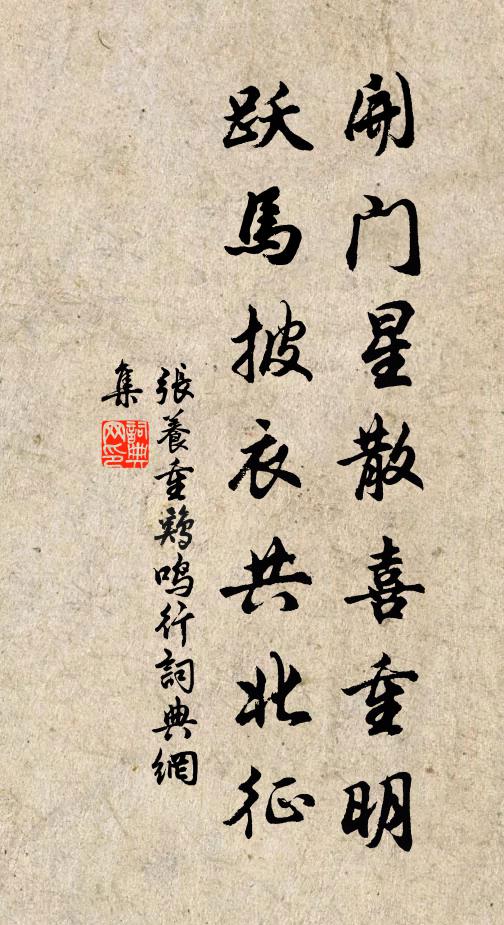 開门星散喜重明
跃馬披衣共北征
張養重鷄鳴行詞典網
集
詞典
网印